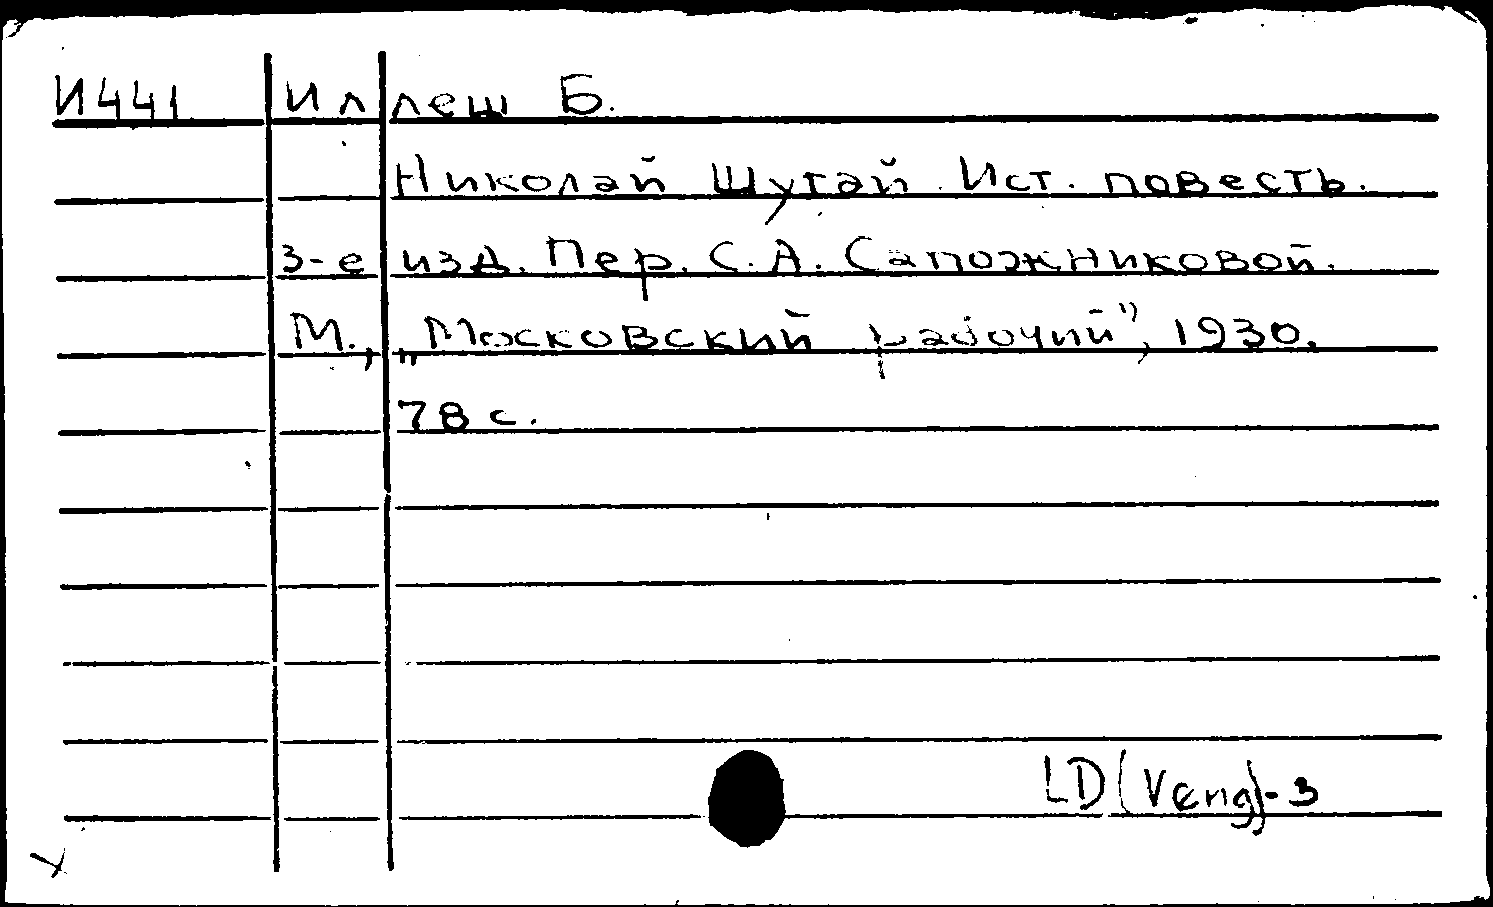 И441 Иллеш Б.
Николай Шугай. Ист. повесть.
3-е изд. Пер. С.А. Сапожниковой.
М., „Московский рабочий", 1930.
78 с.
LD(Veng)-3